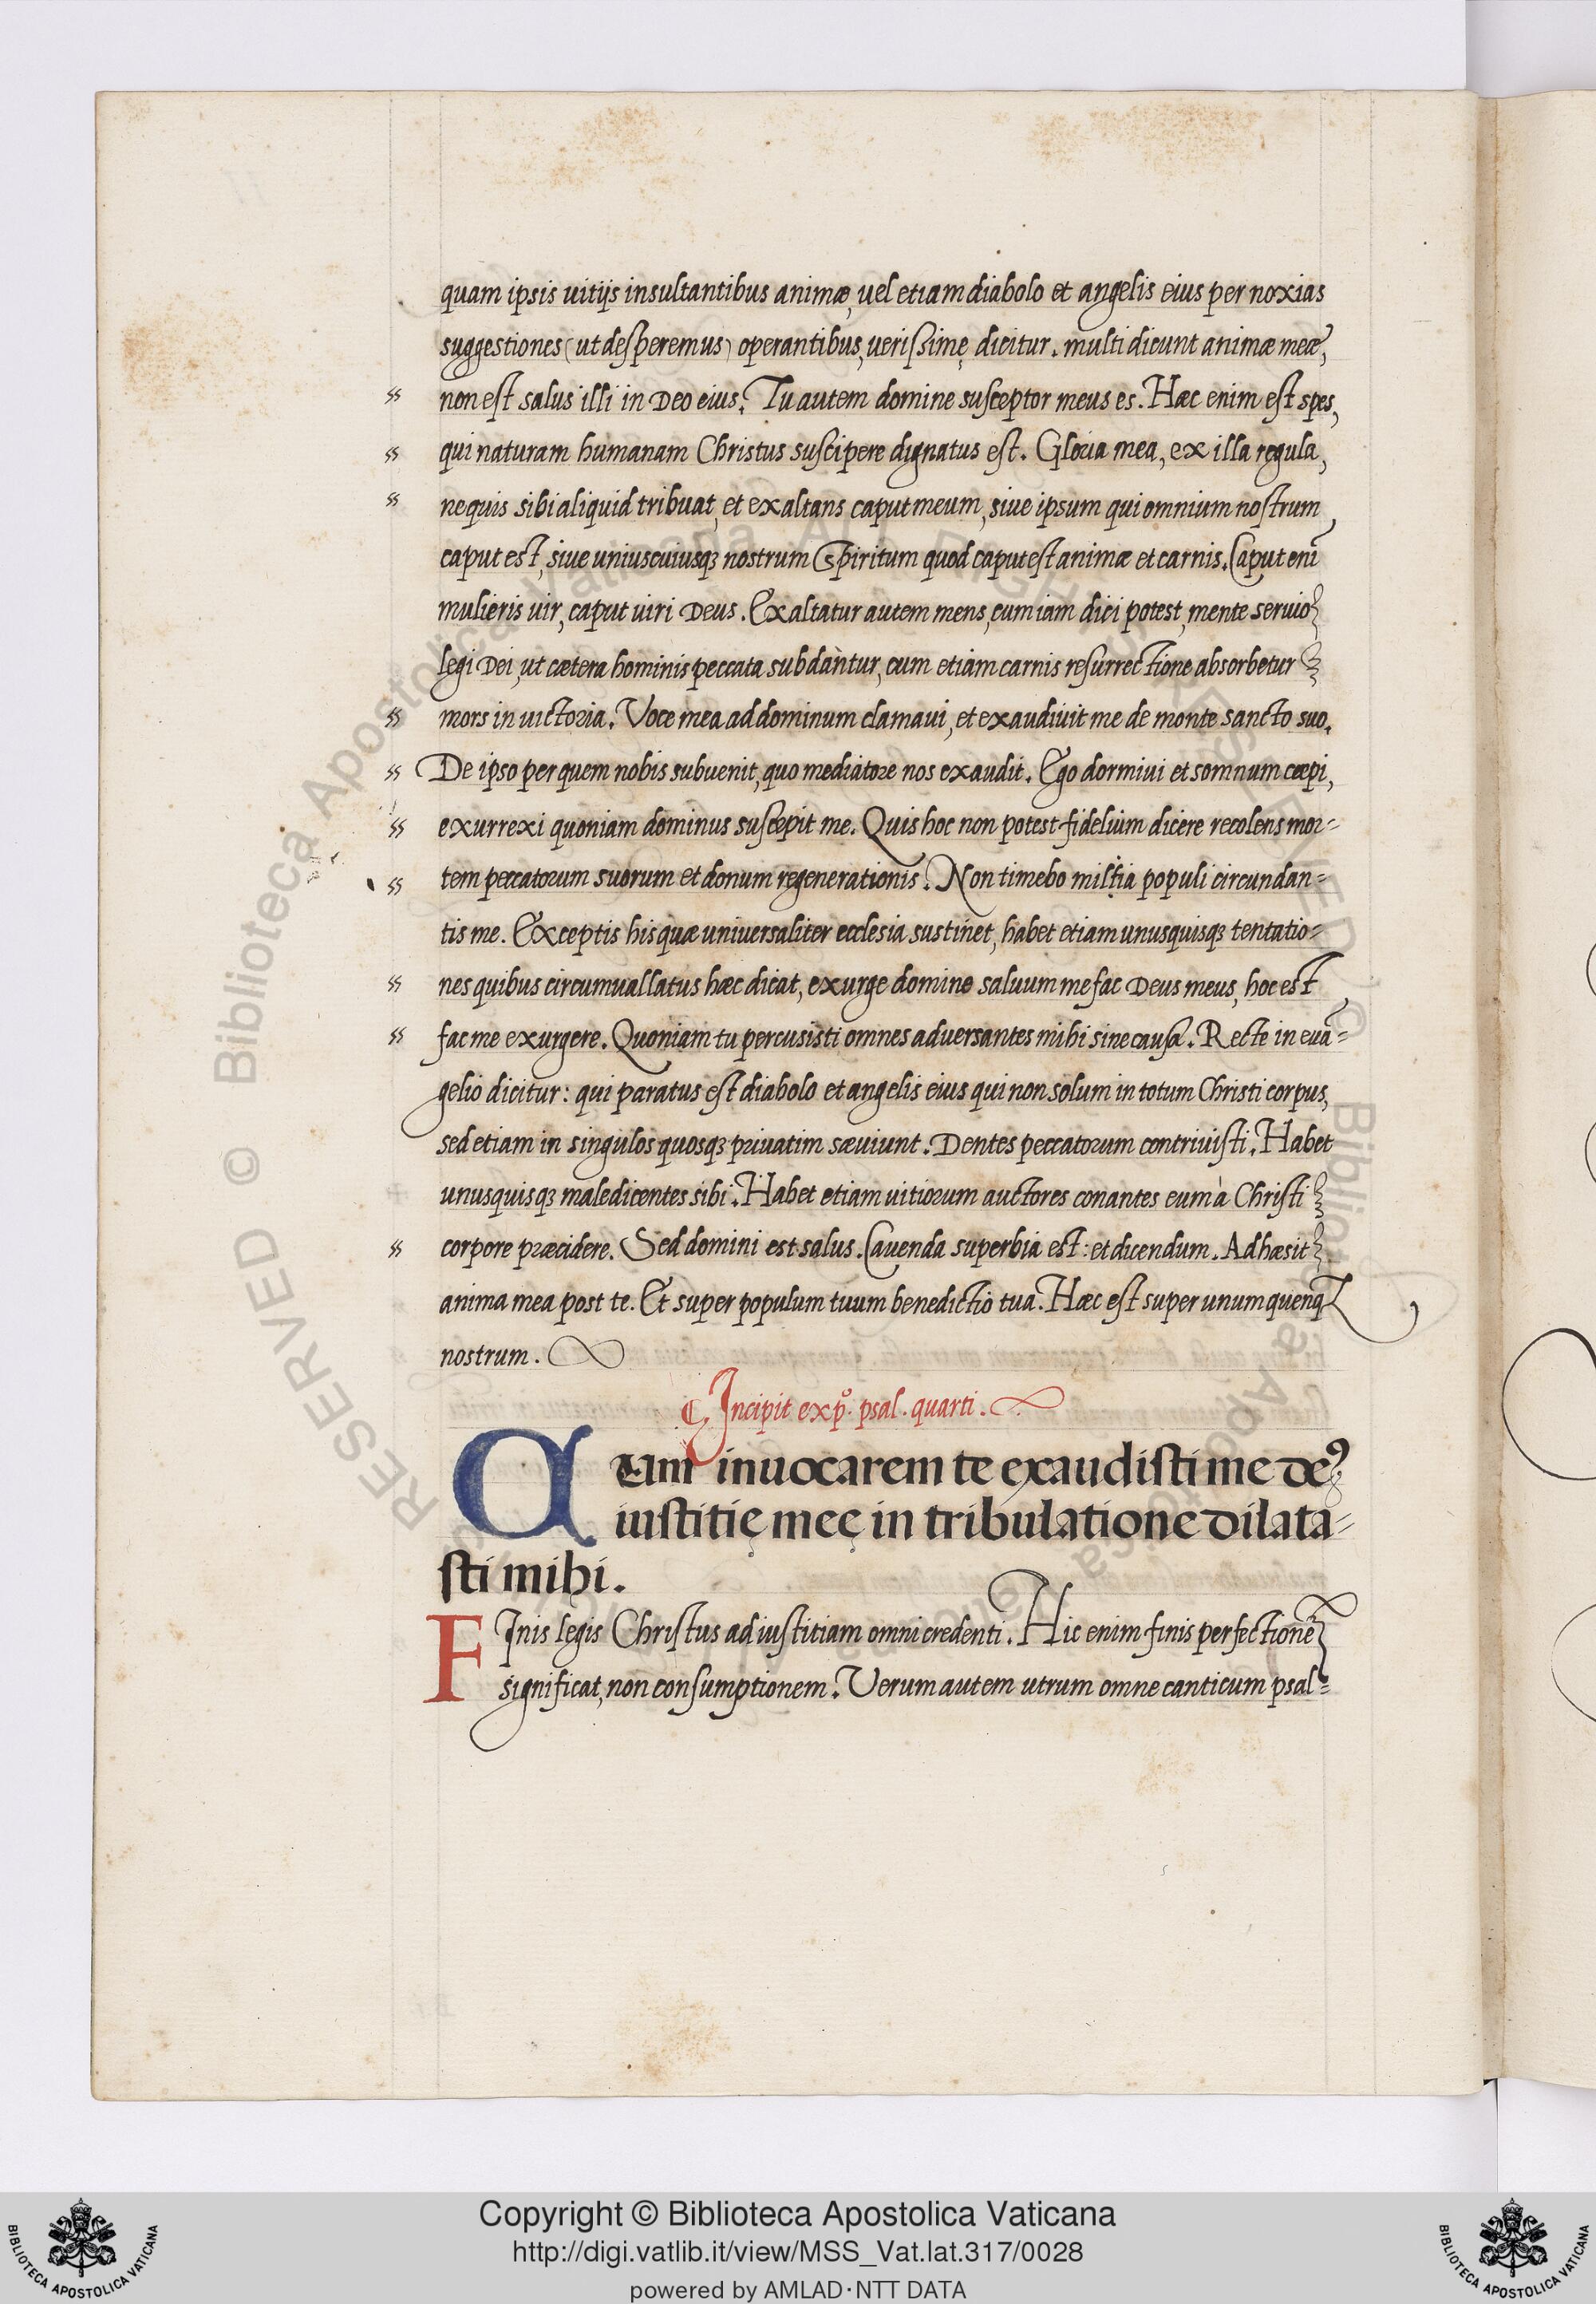 quam ipsis uitijs insultantibus animæ, uel etiam diabolo et angelis eius per noxias
suggestiones (ut desperemus) operantibus, uerissimę dicitur. multi dicunt animæ meæ,
non est salus illi in Deo eius. Tu autem domine susceptor meus es. Hæc enim est spes,
qui naturam humanam Christus suscipere dignatus est. Gloria mea, ex illa regula,
nequis sibi aliquid tribuat, et exaltans caput meum, siue ipsum qui omnium nostrum
caput est, siue uniuscuiusqꝫ nostrum Spiritum quod caput est animæ et carnis. Caput enĩ
mulieris uir, caput uiri Deus. Exaltatur autem mens, cum iam dici potest, mente seruio
legi Dei, ut cætera hominis peccata subdantur, cum etiam carnis resurrectione absorbetur
mors in uictoria. Voce mea ad dominum clamaui, et exaudiuit me de monte sancto suo.
De ipso per quem nobis subuenit, quo mediatore nos exaudit. Ego dormiui et somnum cœpi,
exurrexi quoniam dominus suscepit me. Quis hoc non potest fidelium dicere recolens mor-
tem peccatorum suorum et donum regenerationis. Non timebo milia populi circundan-
tis me. Exceptis his quæ uniuersaliter ecclesia sustinet, habet etiam unusquisqꝫ tentatio-
nes quibus circumuallatus hæc dicat, exurge domine saluum me fac Deus meus, hoc est
fac me exurgere. Quoniam tu percusisti omnes aduersantes mihi sine causa. Recte in euã-
gelio dicitur: qui paratus est diabolo et angelis eius qui non solum in totum Christi corpus,
sed etiam in singulos quosqꝫ priuatim sæuiunt. Dentes peccatorum contriuisti. Habet
unusquisqꝫ maledicentes sibi. Habet etiam uitiorum auctores conantes eum à Christi
corpore præcidere. Sed domini est salus. Cauenda superbia est: et dicendum. Adhæsit
anima mea post te. Et super populum tuum benedictio tua. Hæc est super unum quenqꝫ
nostrum.
¶ Incipit exp̊. psal. quarti.
Cum inuocarem te exaudisti me deꝰ
iustitię meę in tribulatione dilata-
sti mihi.
FInis legis Christus ad iustitiam omni credenti. Hic enim finis perfectionẽ
significat, non consumptionem. Verum autem utrum omne canticum psal-
Copyright © Biblioteca Apostolica Vaticana
http://digi.vatlib.it/view/MSS_Vat.lat.317/0028
powered by AMLAD·NTT DATA
BIBLIOTECA APOSTOLICA VATICANA
BIBLIOTECA APOSTOLICA VATICANA